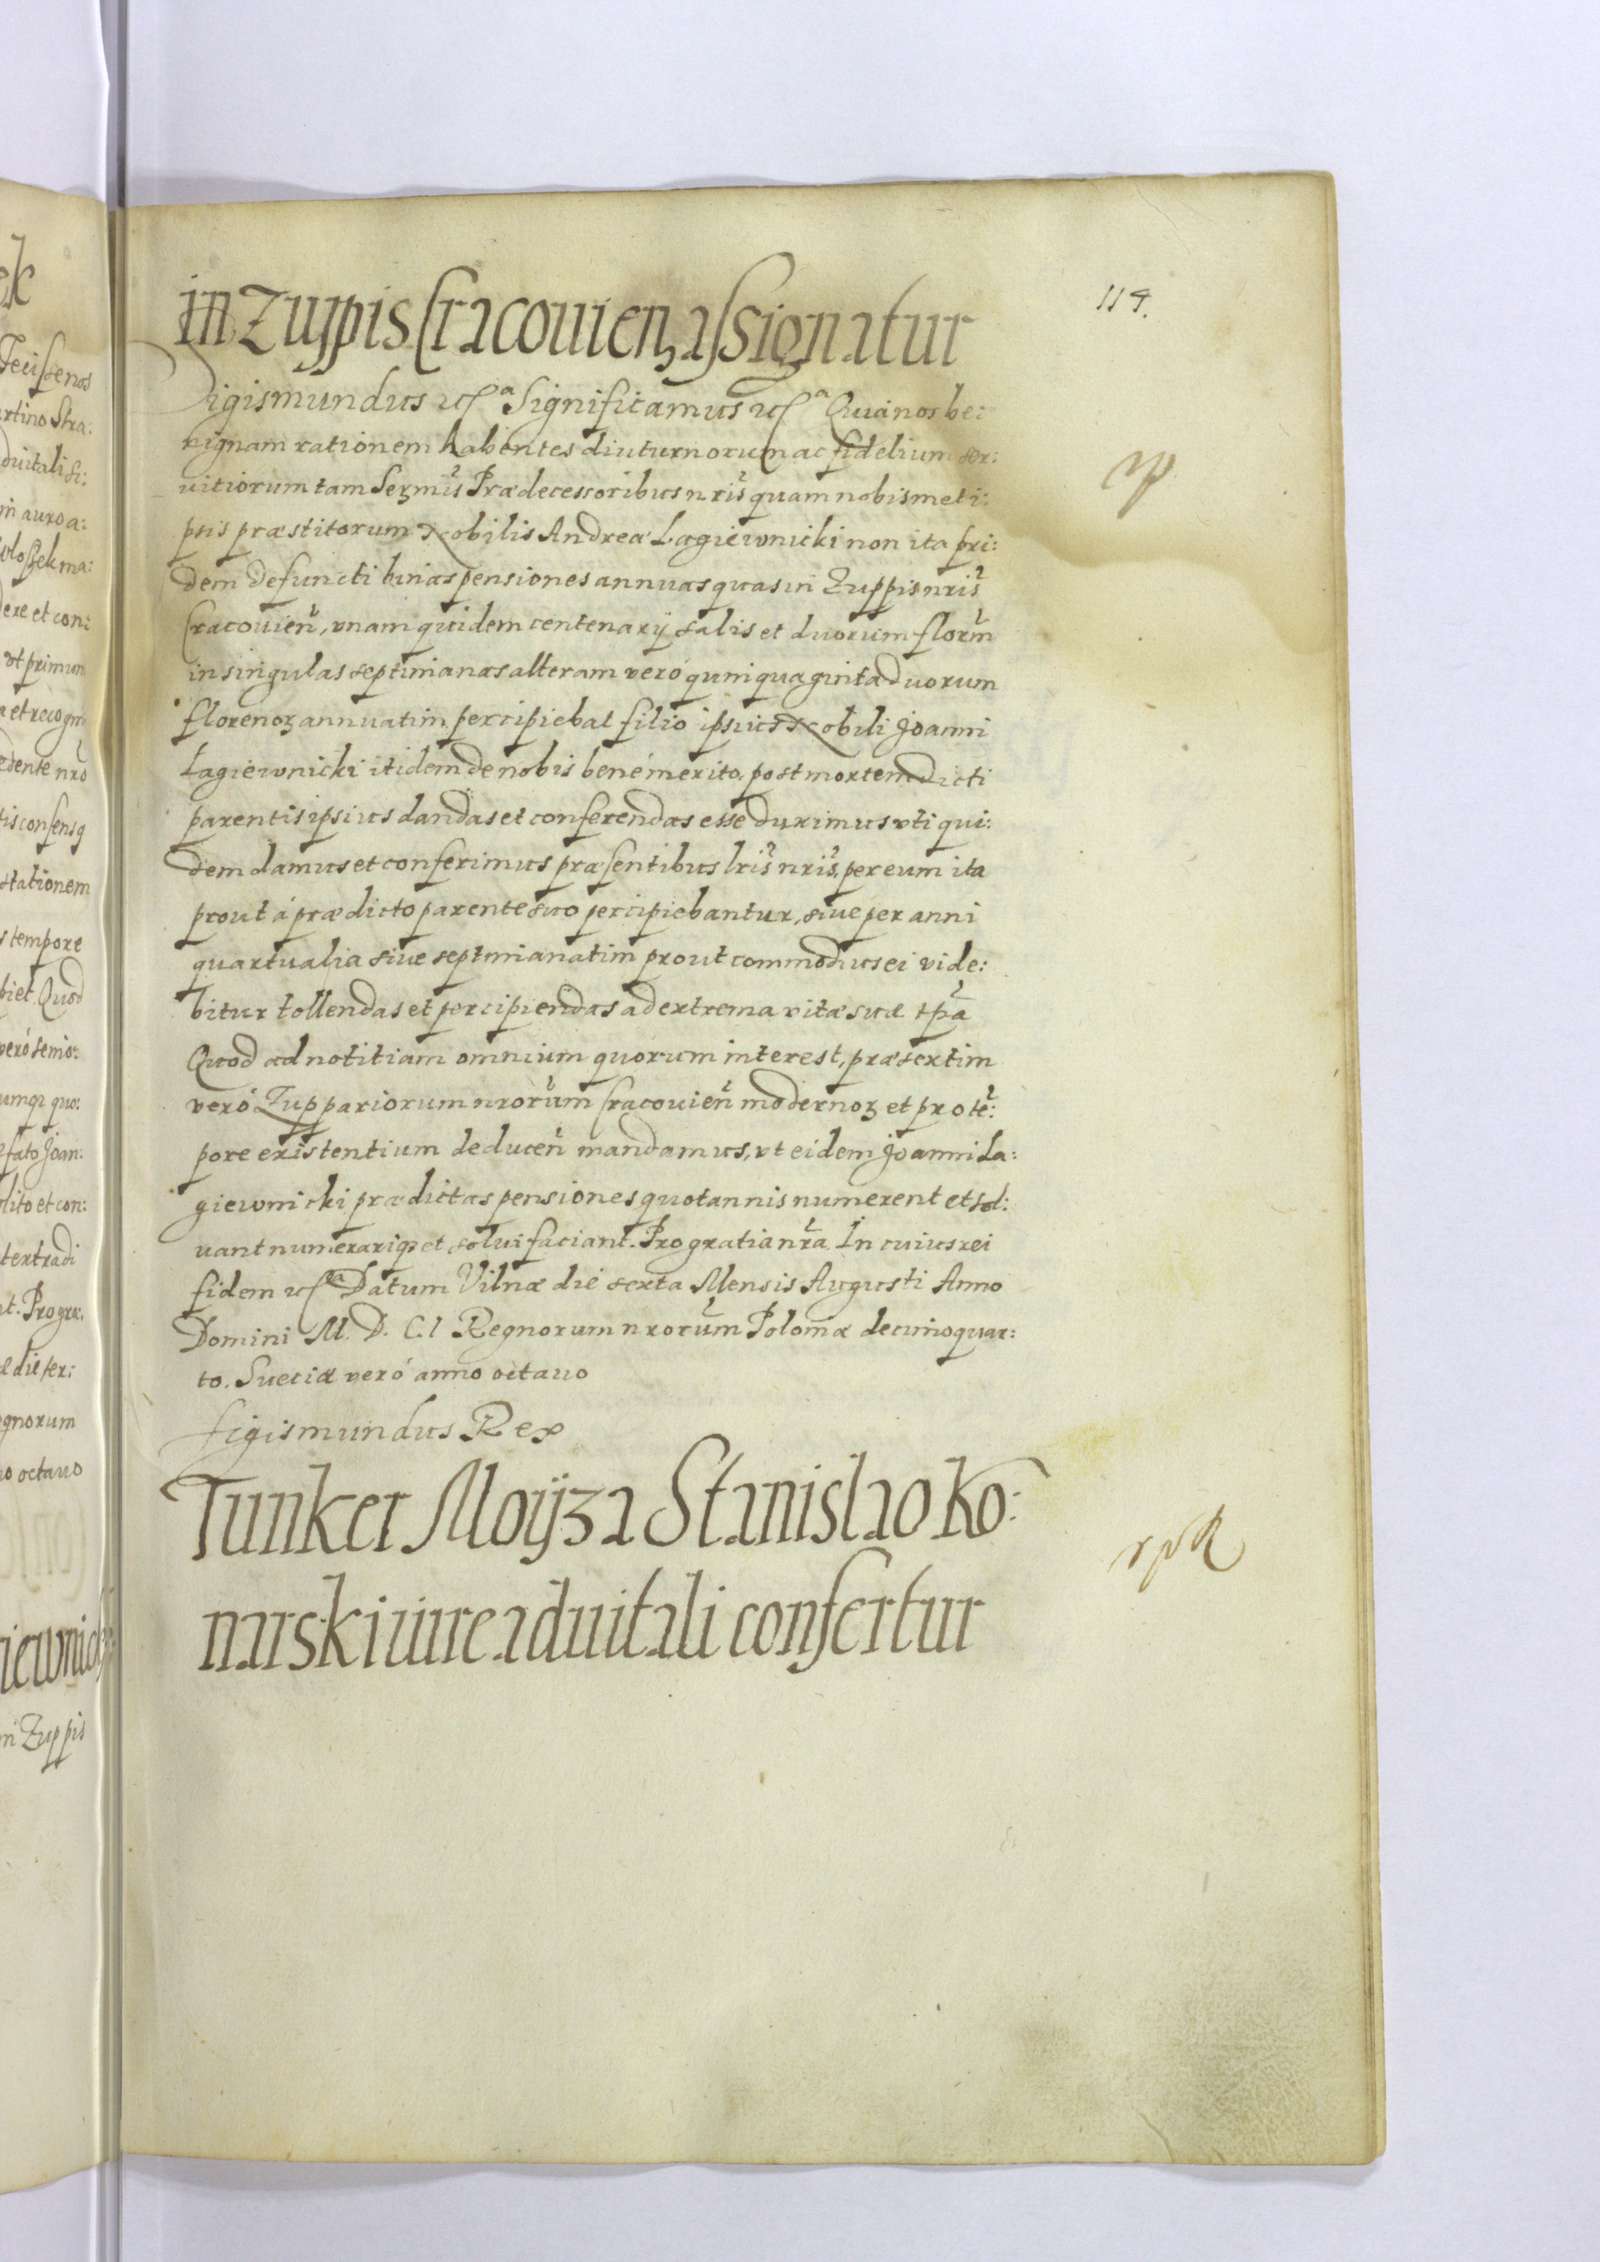 114.
in Zuppis Cracouien assignatur
Sigismundus etc̃a Significamus etc̃a Quia nos be:
nignam rationem habentes diuturnorum ac fidelium ser:
uitiorum tam Sermis̃ Prædecessoribus nris̃ quam nobismeti:
psis præstitorum Nobilis Andreæ Lagiewnicki non ita pri:
dem defuncti binas pensiones annuas quas in Zuppis nris̃
Cracouien̄, vnam quidem centenarij salis et duorum florm̃
in singulas septimanas alteram veró quinquaginta duorum
florenoꝝ annuatim percipiebat filio ipsius Nobili Joanni
Lagiewnicki itidem de nobis bené merito, post mortem dicti
parentis ipsius dandas et conferendas esse duximus vti qui:
dem damus et conferimus præsentibus lris̃ nris̃, per eum ita
prout á prædicto parente suo percipiebantur, siue per anni
quartualia siue septimanatim prout commodius ei vide:
bitur tollendas et percipiendas ad extrema vitæ suæ tp̃a
Quod ad notitiam omnium quorum interest, præsertim
veró Zuppariorum nrorum̃ Cracouien̄ modernoꝝ et pro tē:
pore existentium deducen̄ mandamus, vt eidem Joanni La:
giewnicki prædictas pensiones quotannis numerent et sol:
uant numerariqꝫ et solui faciant. Pro gratia nr̃a. In cuius rei
fidem etc̃a Datum Vilnæ die sexta Mensis Augusti Anno
Domini M. D. C. I Regnorum nrorum̃ Poloniæ decimoquar:
to. Sueciæ veró anno octauo
Sigismundus Rex
Tunker Moÿza Stanislao Ko:
narski iure aduitali confertur